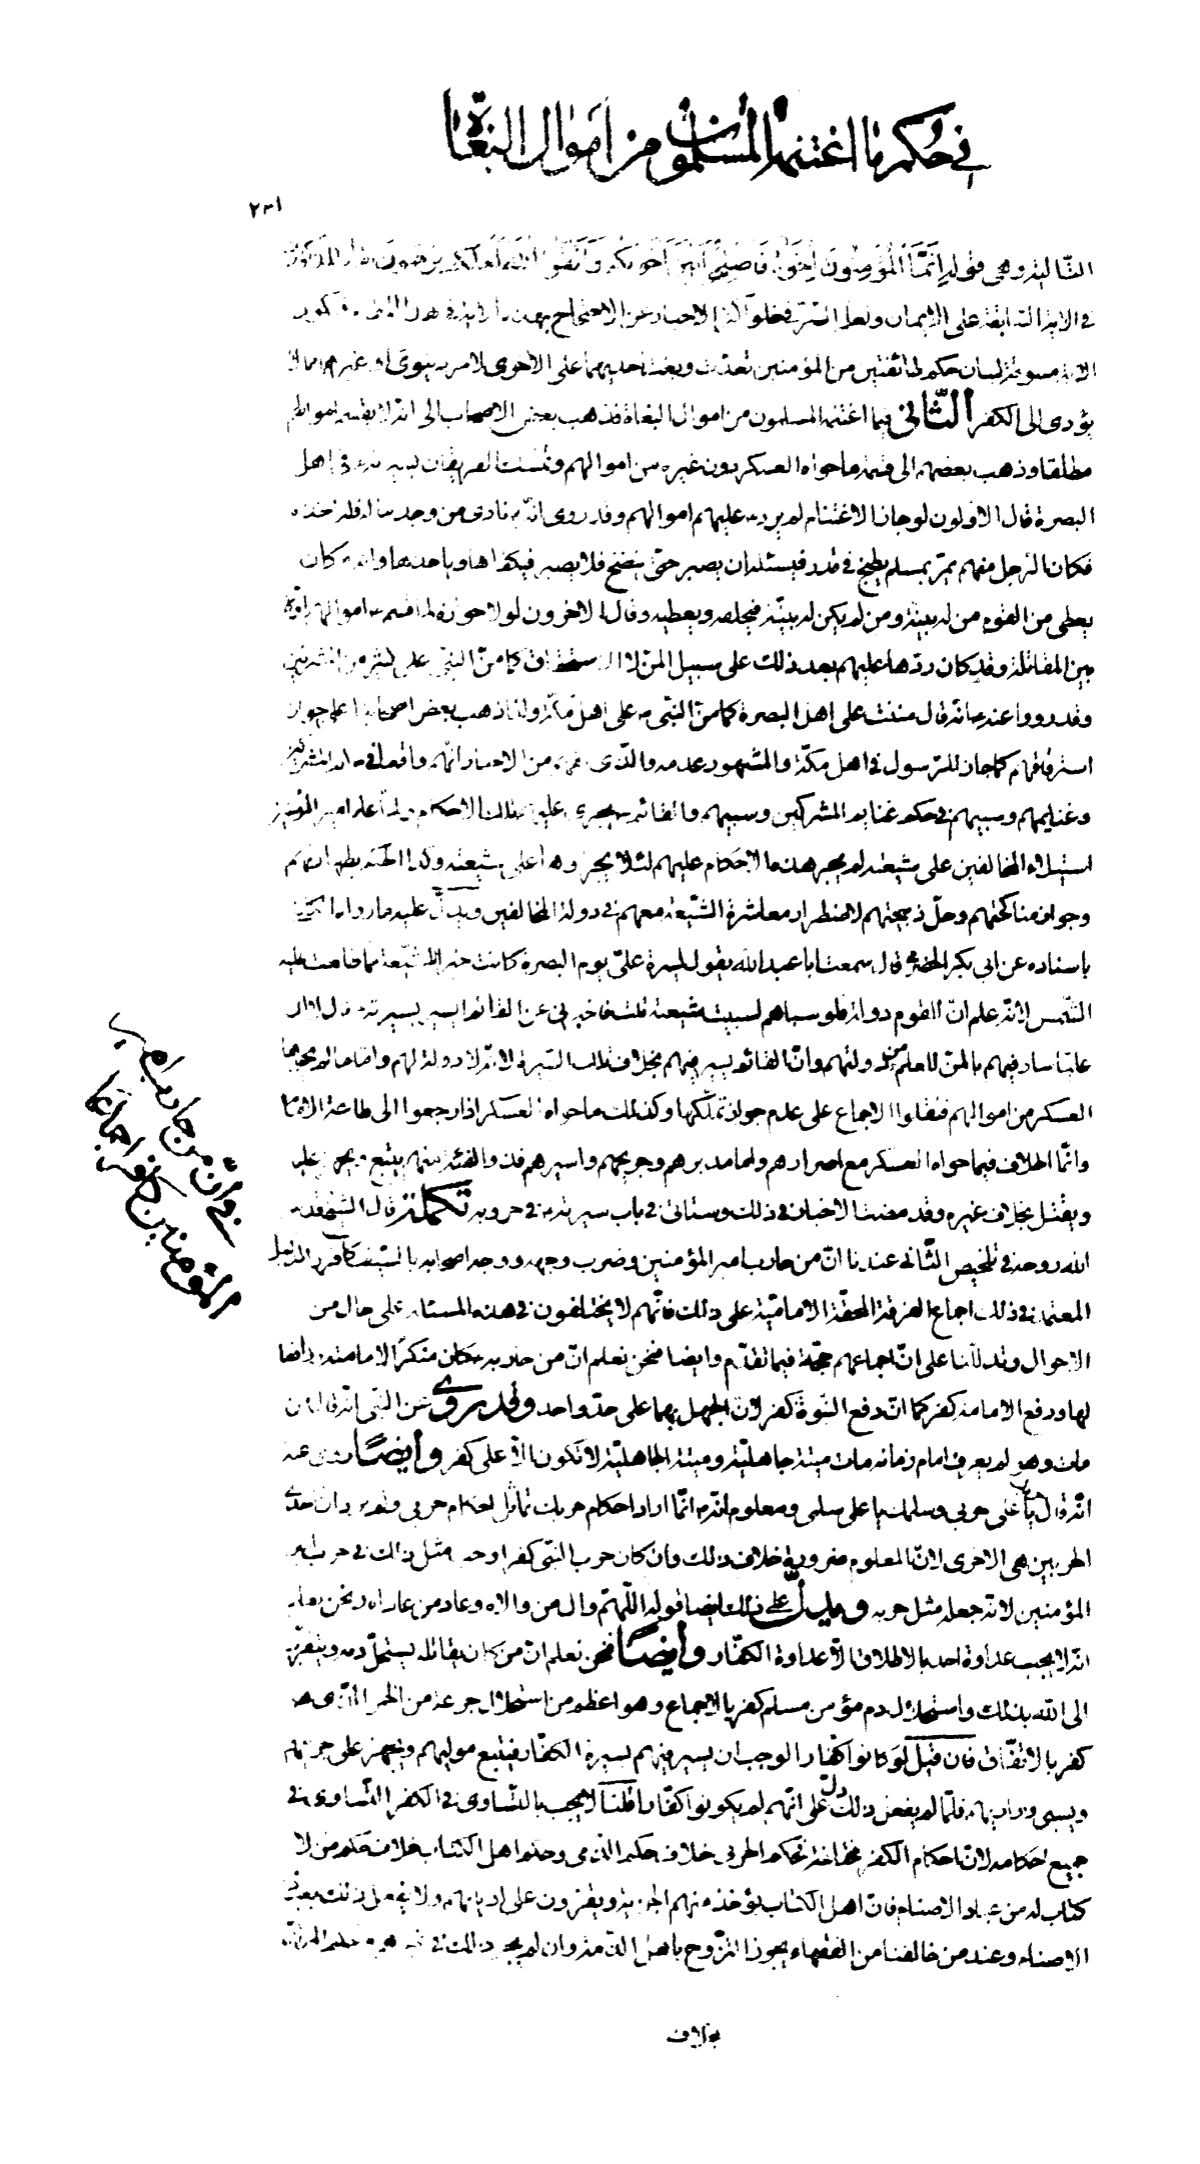 في حكم ما اغتنمه المسلمون من اموال البغاة
٢٣١
التالية وهي قوله إِنَّمَا الْمُؤْمِنُونَ إِخْوَةٌ فَأَصْلِحُوا بَيْنَ أَخَوَيْكُمْ وَاتَّقُوا اللهَ لَعَلَّكُمْ تُرْحَمُونَ
في الاية السابقة على الايمان ولعل السر في خلو اكثر الاخبار عن الاحتجاج بهذه الاية في هذا
الاية مسوقة لبيان حكم طائفتين من المؤمنين تعدت وبغت احديهما على الاخرى لامر دنيوى او غيره مما لا
يؤدى الى الكفر الثاني فيما اغتنمه المسلمون من اموال البغاة فذهب بعض الاصحاب الى انه لا يقسم اموالهم
مطلقا وذهب بعضهم الى قسمة ما حواه العسكر دون غيره من اموالهم وتمسك الفريقان بسيرته في اهل
البصرة قال الاولون لو جاز الاغتنام لم يرد عليهم اموالهم وقد روى انه نادى من وجد ماله فله اخذه
فكان الرجل منهم يمر بمسلم يطبخ في قدره فيسئله ان يصبر حتى ينضج فلا يصبر فيكفاها وياخذها وانه كان
يعطى من القوم من له بينة ومن لم يكن له بينة فيحلفه ويعطيه وقال الاخرون لولا جوازه لما قسم اموالهم اولا
بين المقاتلة وقد كان ردها عليهم بعد ذلك على سبيل المن لا الاستحقاق كما من النبي على كثير من المشركين
وقد رووا عنه انه قال مننت على اهل البصرة كما من النبي على اهل مكة ولذا ذهب بعض اصحابنا الى جواز
استرقاقهم كما جاز للرسول في اهل مكة والمشهود عدمه والذى نفهم من الاخبار انهم واقعا في حكم المشركين
وغنايمهم وسبيهم في حكم غنايم المشركين وسبيهم والقائم يجرى عليهم تلك الاحكام ولما علم امير المؤمنين
استيلاء المخالفين على شيعته لم يجر هذه الاحكام عليهم لئلا يجروها على شيعته وكذا الحكم بطهارتهم
وجواز مناكحتهم وحل ذبيحتهم لاضطرار معاشرة الشيعة معهم في دولة المخالفين ويدل عليه ما رواه
باسناده عن ابى بكر الحضرمى قال سمعت ابا عبد الله يقول لسيرة على يوم البصرة كانت خيرا لشيعته مما طلعت عليه
الشمس لانه علم ان للقوم دولة فلو سباهم لسبيت شيعته قلت فاخبرنى عن القائم يسير بسيرته قال لا ان
عليا سار فيهم بالمن للعلم من دولتهم وان القائم يسير فيهم بخلاف تلك السيرة لانه لا دولة لهم واما ما لم يحوها
العسكر من اموالهم فنقلوا الاجماع على عدم جواز تملكها وكذلك ما حواه العسكر اذا رجعوا الى طاعة الامام
وانما الخلاف فيما حواه العسكر مع اصرارهم واما مدبرهم وجريحهم واسيرهم فذو الفئة منهم يتبع ويجهز عليه
ويقتل بخلاف غيره وقد مضت الاخبار في ذلك وستاتى في باب سيرته في حروبه تكملة قال الشيخ قدس
الله روحه في تلخيص الشافى عندنا ان من حارب امير المؤمنين وضرب وجهه ووجه اصحابه بالسيف كافر والدليل
المعتمد في ذلك اجماع الفرقة المحقة الامامية على ذلك فانهم لا يختلفون في هذه المسئلة على حال من
الاحوال وقد دللنا على ان اجماعهم حجة فيما تقدم وايضا فنحن نعلم ان من حاربه كان منكرا لامامته دافعا
لها ودفع الامامة كفر كما ان دفع النبوة كفر لان الجهل بهما على حد واحد وقد روى عن النبي انه قال من
مات وهو لم يعرف امام زمانه مات ميتة جاهلية وميتة الجاهلية لا تكون الا على كفر وأيضا روى عنه
انه قال حربك يا على حربى وسلمك يا على سلمى ومعلوم انه انما اراد احكام حربك تماثل احكام حربى ولم يرد ان احدى
الحربين هى الاخرى لان المعلوم ضرورة خلاف ذلك وان كان حرب النبي كفرا وجب مثل ذلك في حرب امير
المؤمنين لانه جعله مثل حربه ويدل على ذلك ايضا قوله اللهم وال من والاه وعاد من عاداه ونحن نعلم
انه لا يجب عداوة احد بالاطلاق الا عداوة الكفار وأيضا نحن نعلم ان من كان يقاتله يستحل دمه ويتقرب
الى الله بذلك واستحلال دم مؤمن مسلم كفر بالاجماع وهو اعظم من استحلال جرعة من الخمر الذى هو
كفر بالاتفاق فان قيل لو كانوا كفارا لوجب ان يسير فيهم بسيرة الكفار فيتبع موليهم ويجهز على جريحهم
ويسبى ذراريهم فلما لم يفعل ذلك دل على انهم لم يكونوا كفارا قلنا لا يجب بالتساوى في الكفر التساوى في
جميع احكامه لان احكام الكفر مختلفة فحكم الحربى خلاف حكم الذمى وحكم اهل الكتاب خلاف حكم من لا
كتاب له من عباد الاصنام فان اهل الكتاب يؤخذ منهم الجزية ويقرون على اديانهم ولا يفعل ذلك بعباد
الاصنام وعند من خالفنا من الفقهاء يجوز التزوج باهل الذمة وان لم يجز ذلك في غيرهم وحكم المرتد
بخلاف
في ان من حارب امير
المؤمنين كافر اجماعا